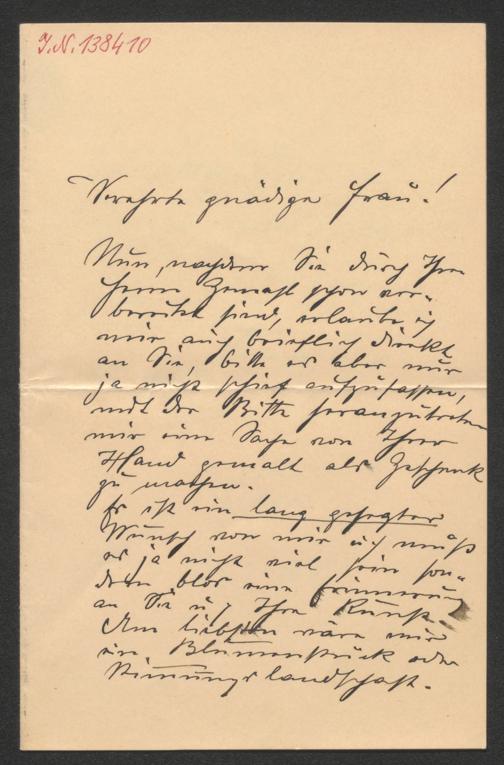 J.N. 138410
Verehrte gnädige Frau!
Nun, nachdem Sie durch Ihren
Herrn Gemahl schon vor-
bereitet sind, erlaube ich
mir auch brieflich direkt
an Sie, bitte es aber mir
ja nicht schief aufzufassen,
mit der Bitte heranzutreten
mir eine Sache von Ihrer
Hand gemalt als Geschenk
zu machen.
Es ist ein lang gehegter
Wunsch von mir u. muß
es ja nicht viel sein son-
dern blos eine Erinnerung
an Sie u. Ihre Kunst.
Am liebsten wäre mir
ein Blumenstück oder
Stimmungslandschaft.